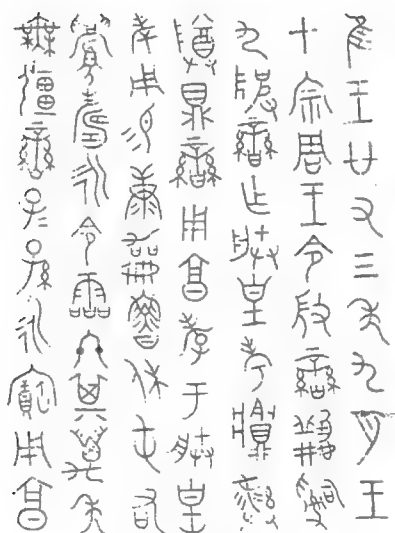 隹王廿又三年九月王
才宗周王令𢼸䜌𤔲
九陂䜌乍朕皇考䵼彝
尊鼎䜌用享孝于朕皇
考用易康勖魯休屯右
眉壽永令霝冬其萬年
無疆䜌子孫永寶用享